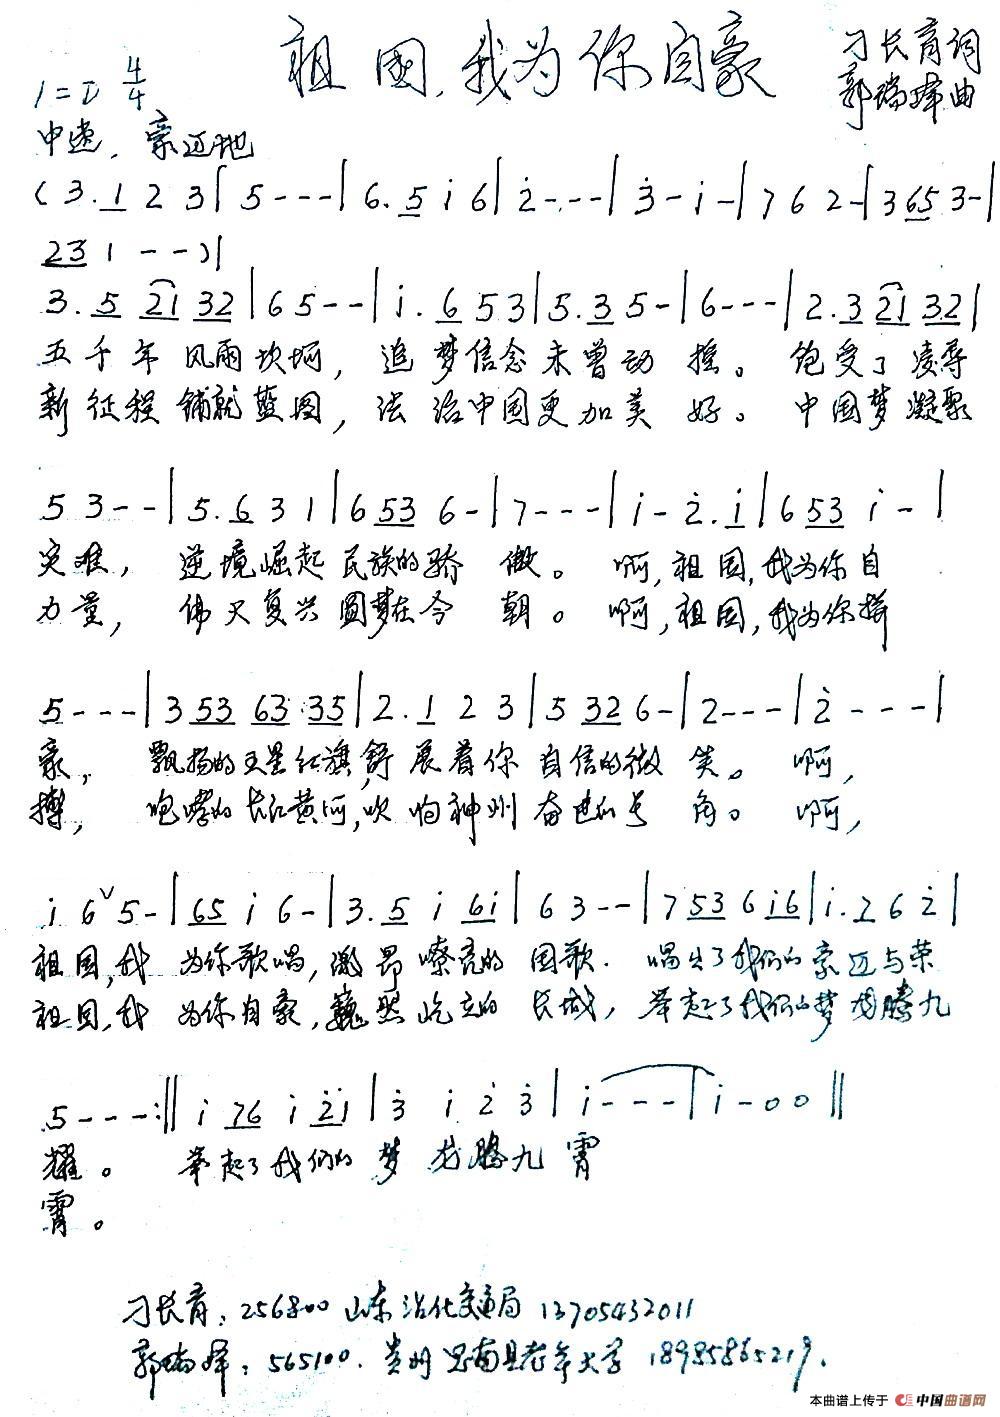 祖国,我为你自豪
刁长育词
1=D 4/4
郭瑞峰曲
中速,豪迈地
(3.1 2 3|5---|6.5 i 6|2̇---|3̇-i-|7 6 2-|3 65 3-|
23 1 --)|
3.5 21 32|6 5--|i.6 5 3|5.3 5-|6---|2.3 21 32|
五千年风雨坎坷,追梦信念未曾动摇。饱受了凌辱
新征程铺就蓝图,法治中国更加美好。中国梦凝聚
5 3--|5.6 3 1|6 53 6-|7---|i-2̇.i|6 53 i-|
灾难,逆境崛起民族的骄傲。啊,祖国,我为你自
力量,伟大复兴圆梦在今朝。啊,祖国,我为你拼
5---|3 53 63 35|2.1 2 3|5 32 6-|2---|2̇---|
豪,飘扬的五星红旗,舒展着你自信的微笑。啊,
搏,咆哮的长江黄河,吹响神州奋进的号角。啊,
i 6ˇ5-|65 i 6-|3.5 i 6i|6 3--|7 53 6 i6|i.7 6 2̇|
祖国,我为你歌唱,激昂嘹亮的国歌.唱出了我们的豪迈与荣
祖国,我为你自豪,巍然屹立的长城,举起了我们的梦龙腾九
5---:‖i 76 i 2̇i|3̇ i 2̇ 3̇|i---|i-00‖
耀。举起了我们的梦龙腾九霄
霄。
刁长育:256800山东沾化交通局13705432011
郭瑞峰:565100.贵州思南县老年大学18985865219.
本曲谱上传于 中国曲谱网